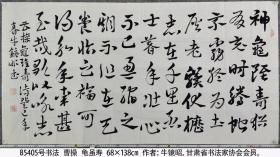 神龜雖壽
猶有竟時騰蛇
乘霧終为土
灰老驥伏櫪
志在千里烈
士暮年壮心
不已盈縮之期
不但在天養
怡之福可
得永年幸甚至
哉歌以詠志
85405号书法 曹操 龟虽寿 68×138cm 作者:牛镜昭,甘肃省书法家协会会员。